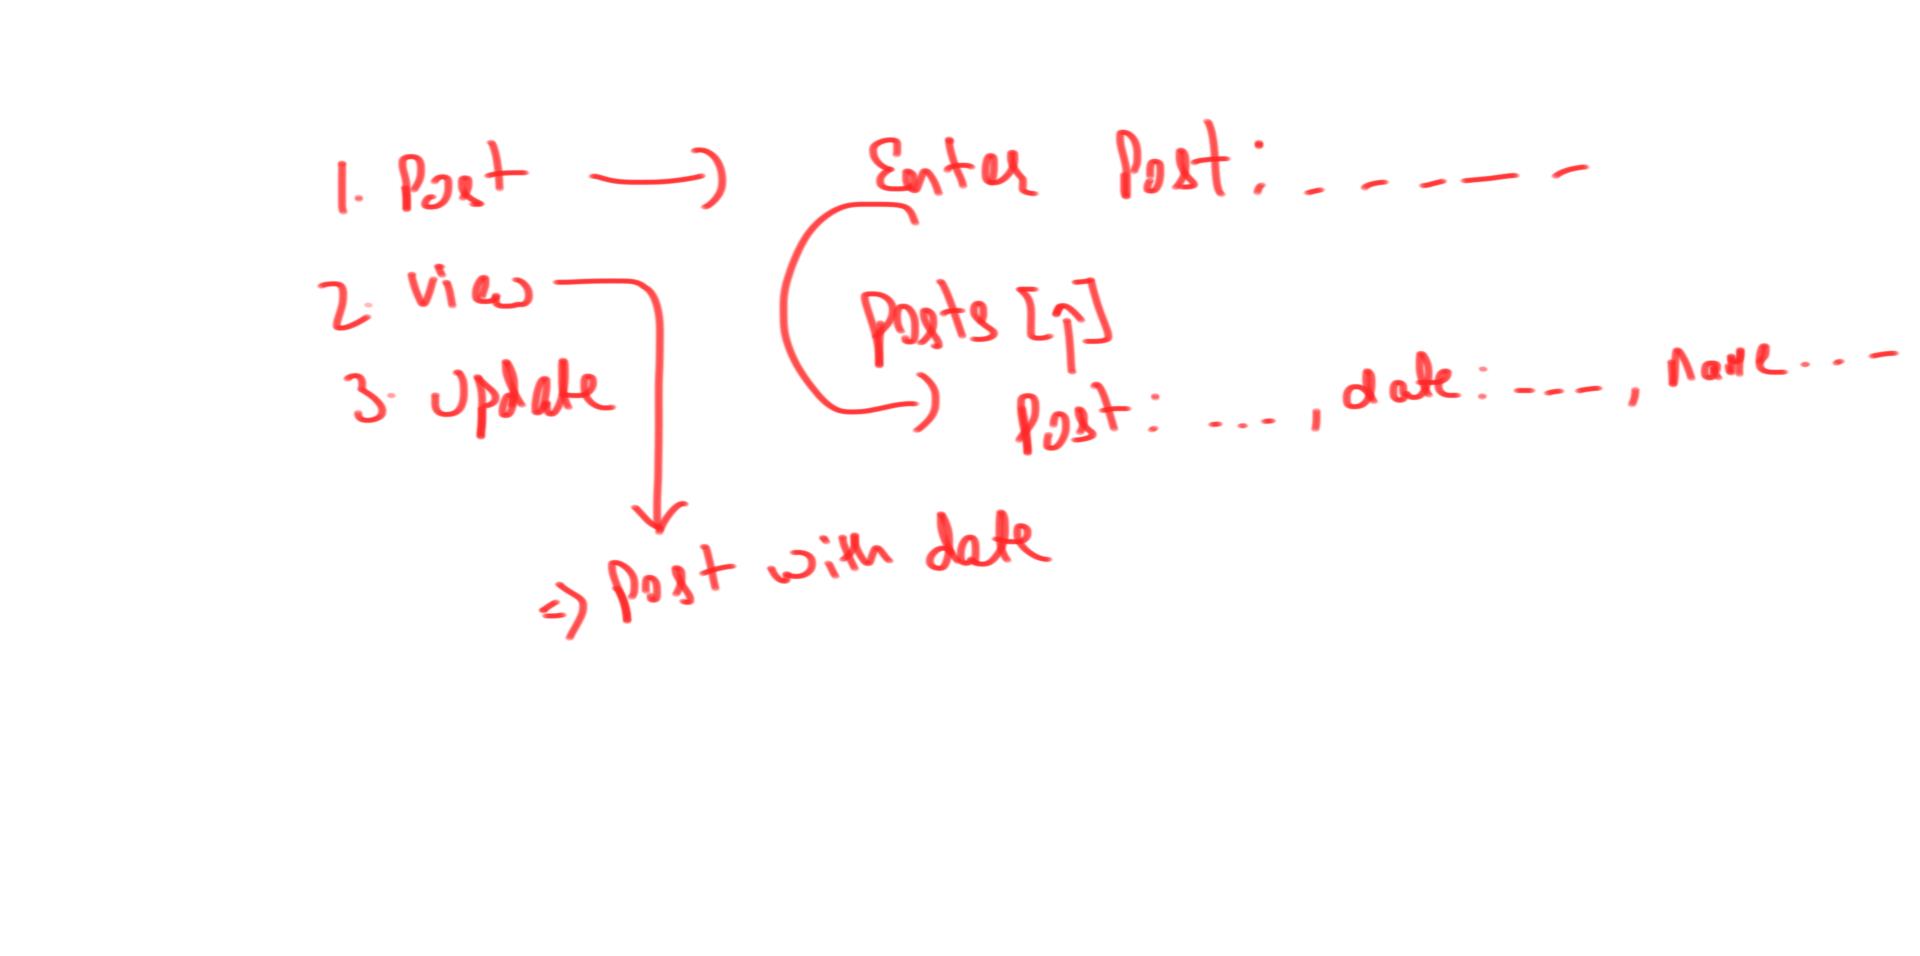 1. Post → Enter Post: - - - - - -
2. View
Posts [p]
3. Update
Post: ----, date: ----, name ----
=> Post with date